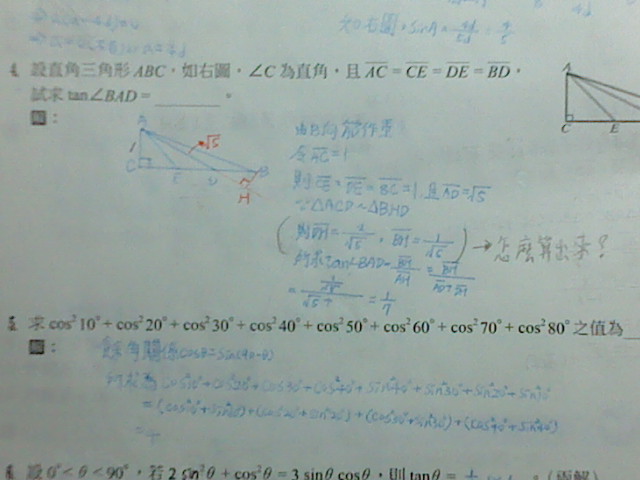 如右圖，sinA = 4d/5d = 4/5
4. 設直角三角形 ABC，如右圖，∠C 為直角，且 AC = CE = DE = BD，
試求 tan∠BAD = ______ 。
解：
A
1
√5
C E D B
H
A
C E
由B向
作垂
令 AC = 1
則 CE = DE = BC = 1，且 AD = √5
∵ △ACD ~ △BHD
(則 DH = 2/√5，BH = 1/√5) → 怎麼算出來？
所求 tan∠BAD = BH/AH = BH/(AD+DH)
= 1/7
5. 求 cos²10° + cos²20° + cos²30° + cos²40° + cos²50° + cos²60° + cos²70° + cos²80° 之值為
解：
餘角關係 cosθ = sin(90-θ)
所求為 cos²10° + cos²20° + cos²30° + cos²40° + sin²40° + sin²30° + sin²20° + sin²10°
= (cos²10° + sin²10°) + (cos²20° + sin²20°) + (cos²30° + sin²30°) + (cos²40° + sin²40°)
= 4
6. 設 0° < θ < 90°，若 2 sin²θ + cos²θ = 3 sinθ cosθ，則 tanθ =